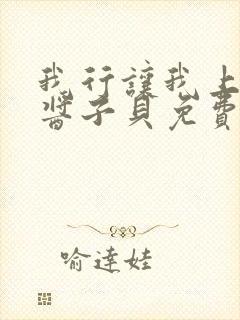 我行讓我上
醬子貝免費
喻達娃